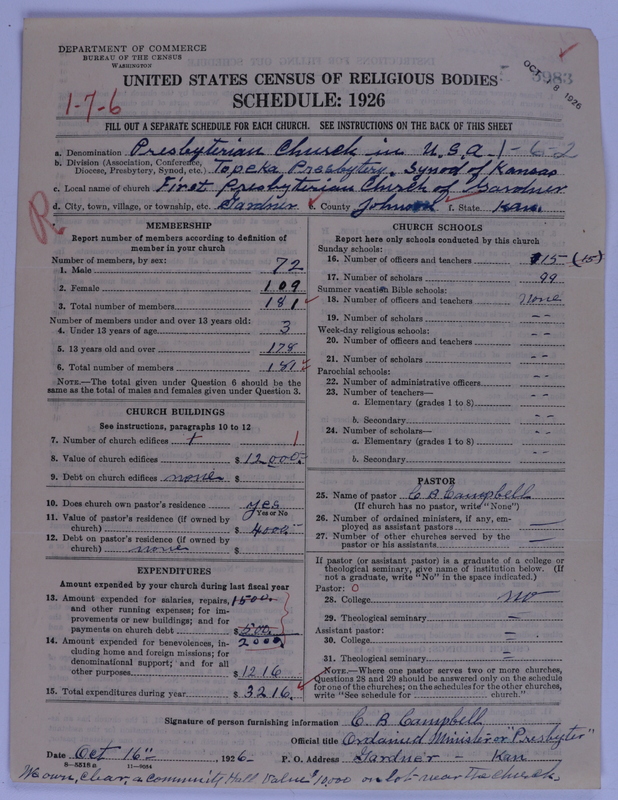 DEPARTMENT OF COMMERCE
BUREAU OF THE CENSUS
WASHINGTON
OCT 18 1926
3983
UNITED STATES CENSUS OF RELIGIOUS BODIES
1-7-6
SCHEDULE: 1926
FILL OUT A SEPARATE SCHEDULE FOR EACH CHURCH. SEE INSTRUCTIONS ON THE BACK OF THIS SHEET
a. Denomination Presbyterian Church in U.S.A. 1-6-2
b. Division (Association, Conference, Diocese, Presbytery, Synod, etc.) Topeka Presbytery. Synod of Kansas
c. Local name of church First Presbyterian Church of Gardner
d. City, town, village, or township, etc. Gardner e. County Johnson f. State Kan.
R
MEMBERSHIP
Report number of members according to definition of
member in your church
Number of members, by sex:
1. Male 72
2. Female 109
3. Total number of members 181
Number of members under and over 13 years old:
4. Under 13 years of age 3
5. 13 years old and over 178
6. Total number of members 181
NOTE.—The total given under Question 6 should be
the same as the total of males and females given under Question 3.
CHURCH BUILDINGS
See instructions, paragraphs 10 to 12
7. Number of church edifices 1
8. Value of church edifices $ 12000.
9. Debt on church edifices none $
10. Does church own pastor's residence yes
Yes or No
11. Value of pastor's residence (if owned by
church) $ 4000
12. Debt on pastor's residence (if owned by
church) none $
EXPENDITURES
Amount expended by your church during last fiscal year
13. Amount expended for salaries, repairs, 1500.
and other running expenses; for im-
provements or new buildings; and for
payments on church debt $ 500.
2000
14. Amount expended for benevolences, in-
cluding home and foreign missions; for
denominational support; and for all
other purposes $ 1216
15. Total expenditures during year $ 3216.
CHURCH SCHOOLS
Report here only schools conducted by this church
Sunday schools:
16. Number of officers and teachers 15 (15)
17. Number of scholars 99
Summer vacation Bible schools:
18. Number of officers and teachers none
19. Number of scholars - -
Week-day religious schools:
20. Number of officers and teachers - -
21. Number of scholars - -
Parochial schools:
22. Number of administrative officers - -
23. Number of teachers—
a. Elementary (grades 1 to 8) - -
b. Secondary - -
24. Number of scholars—
a. Elementary (grades 1 to 8) - -
b. Secondary - -
PASTOR
25. Name of pastor C B Campbell
(If church has no pastor, write "None")
26. Number of ordained ministers, if any, em-
ployed as assistant pastors —
27. Number of other churches served by the
pastor or his assistants —
If pastor (or assistant pastor) is a graduate of a college or
theological seminary, give name of institution below. (If
not a graduate, write "No" in the space indicated.)
Pastor: 0
28. College no
29. Theological seminary =
Assistant pastor:
30. College =
31. Theological seminary =
NOTE.—Where one pastor serves two or more churches,
Questions 28 and 29 should be answered only on the schedule
for one of the churches; on the schedules for the other churches,
write "See schedule for church."
Signature of person furnishing information C. B Campbell
Official title Ordained Minister or "Presbyter"
Date Oct 16" 1926. P. O. Address Gardner - Kan
8-5818a 11-9884
We own, clear, a community Hall value $10,000 on lot near the church.